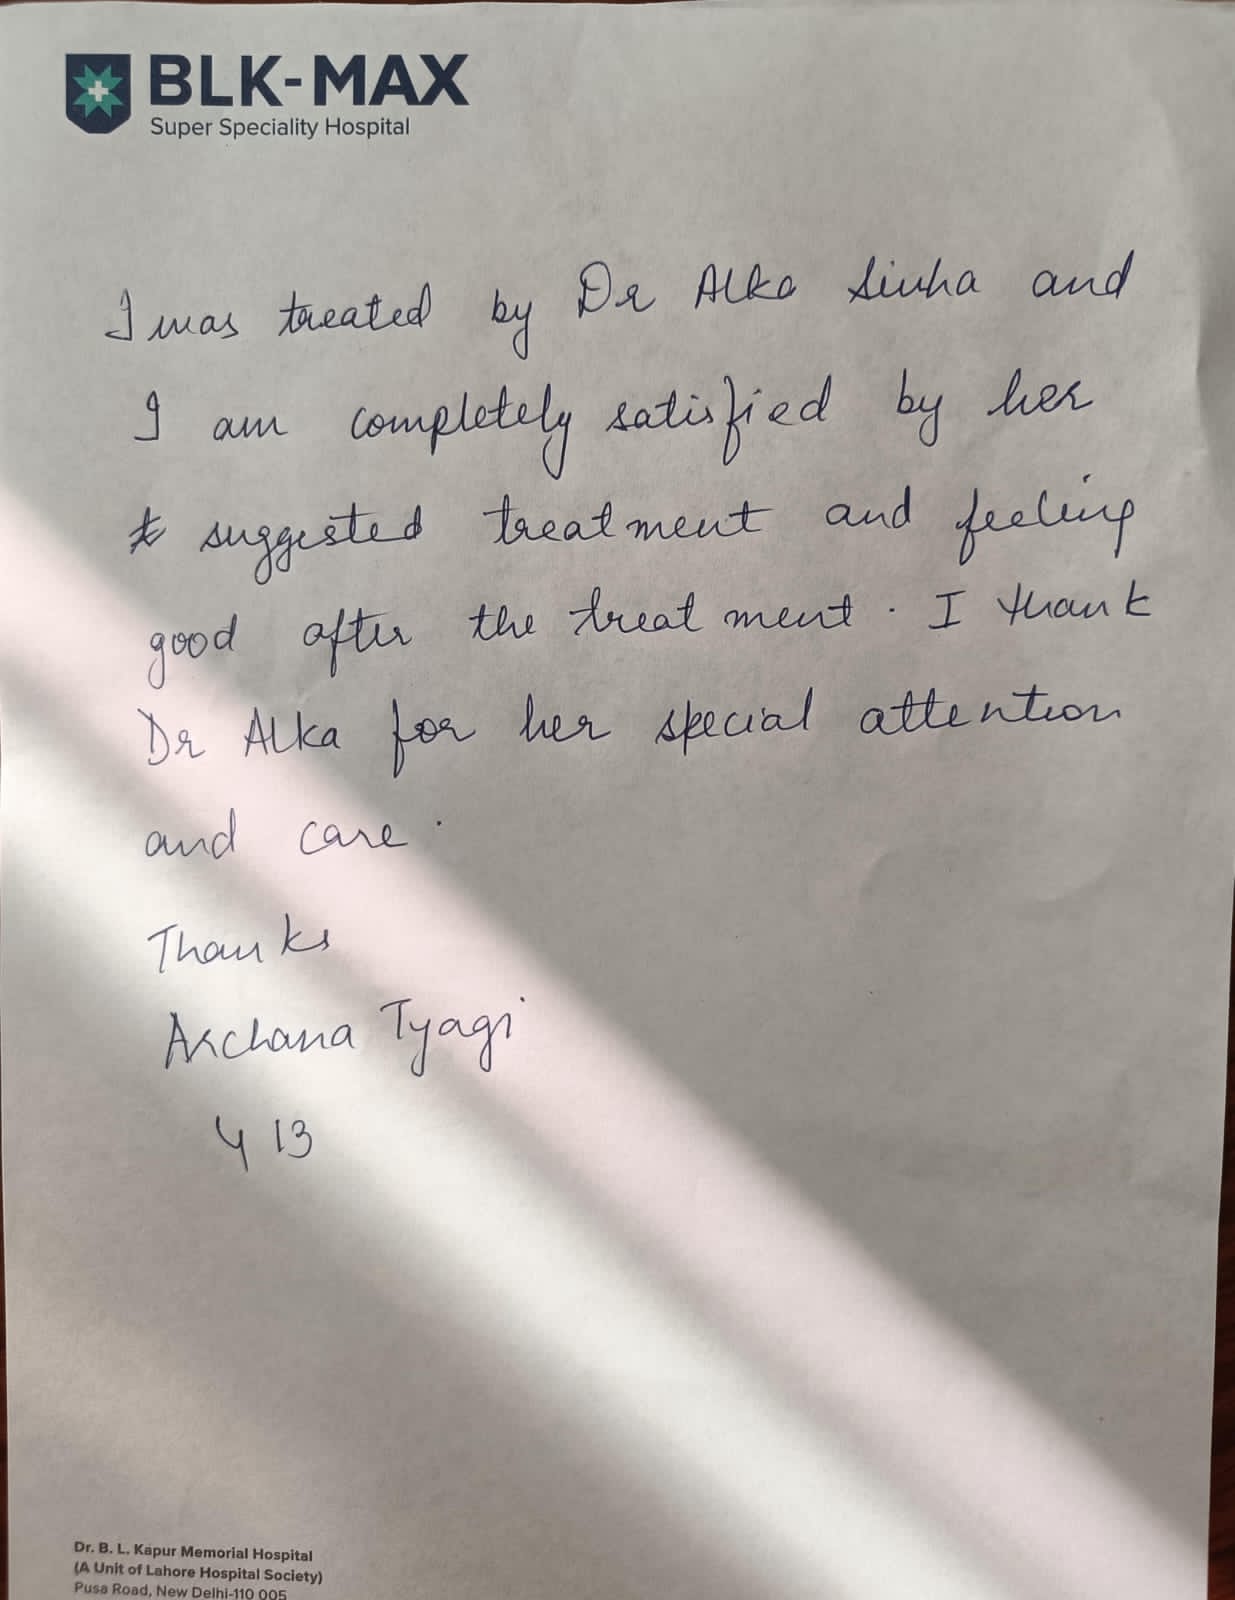 BLK-MAX
Super Speciality Hospital
I was treated by Dr Alka Sinha and
I am completely satisfied by her
suggested treatment and feeling
good after the treatment. I thank
Dr Alka for her special attention
and care.
Thanks
Archana Tyagi
413
Dr. B. L. Kapur Memorial Hospital
(A Unit of Lahore Hospital Society)
Pusa Road, New Delhi-110 005